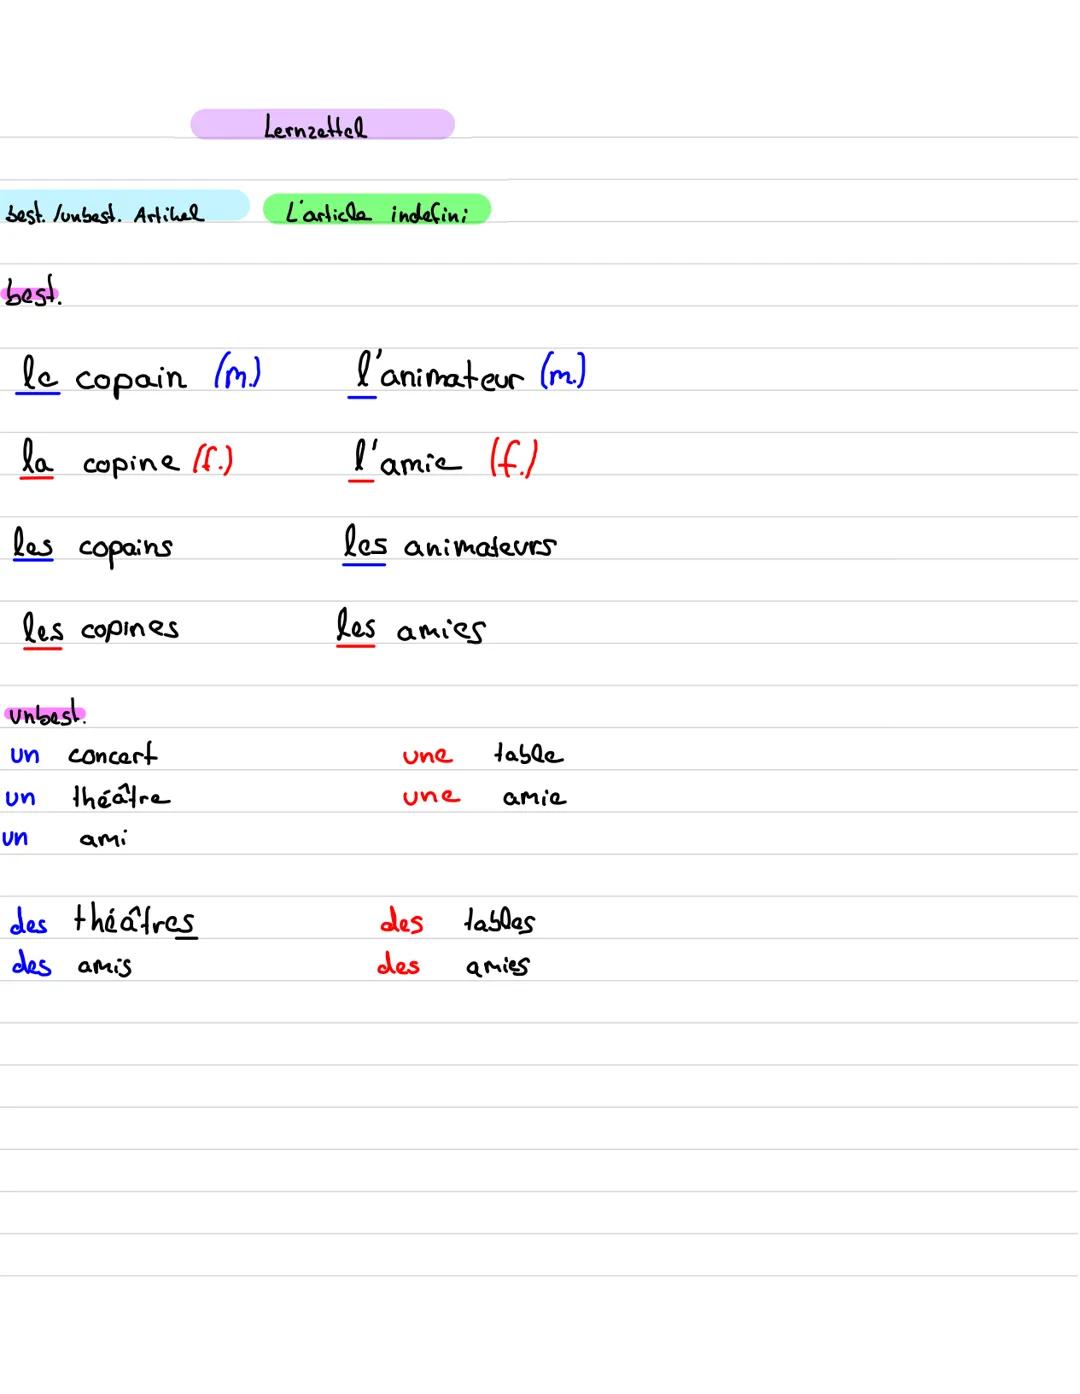 Lernzettel
best./unbest. Artikel L'article indefini
best.
le copain (m.) l'animateur (m.)
la copine (f.) l'amie (f.)
les copains les animateurs
les copines les amies
unbest.
un concert une table
un théâtre une amie
un ami
des théâtres des tables
des amis des amies